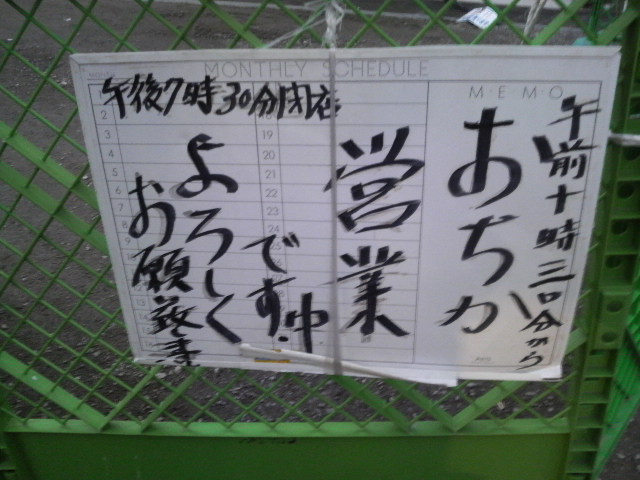 MONTHLY SCHEDULE
MEMO
午前十時三〇分から
おぢか
営業中
です.
よろしく
お願い致します
午後7時30分閉店
2
3
4
5
6
7
8
9
19
20
21
22
23
24